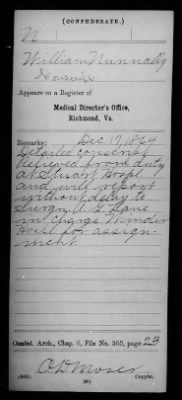 (CONFEDERATE.)
N
William Nunnally
Appears on a Register of
Medical Director's Office,
Richmond, Va.
Remarks: Dec. 17, 1864
Detailed conscript
Relieved from duty
at Stuart Hospl
and will report
without delay to
Surgn A. G. Lane
in Charge Winder
Hospl for assign-
ment
Confed. Arch., Chap. 6, File No. 365, page 23
O D Moser
Copyist.